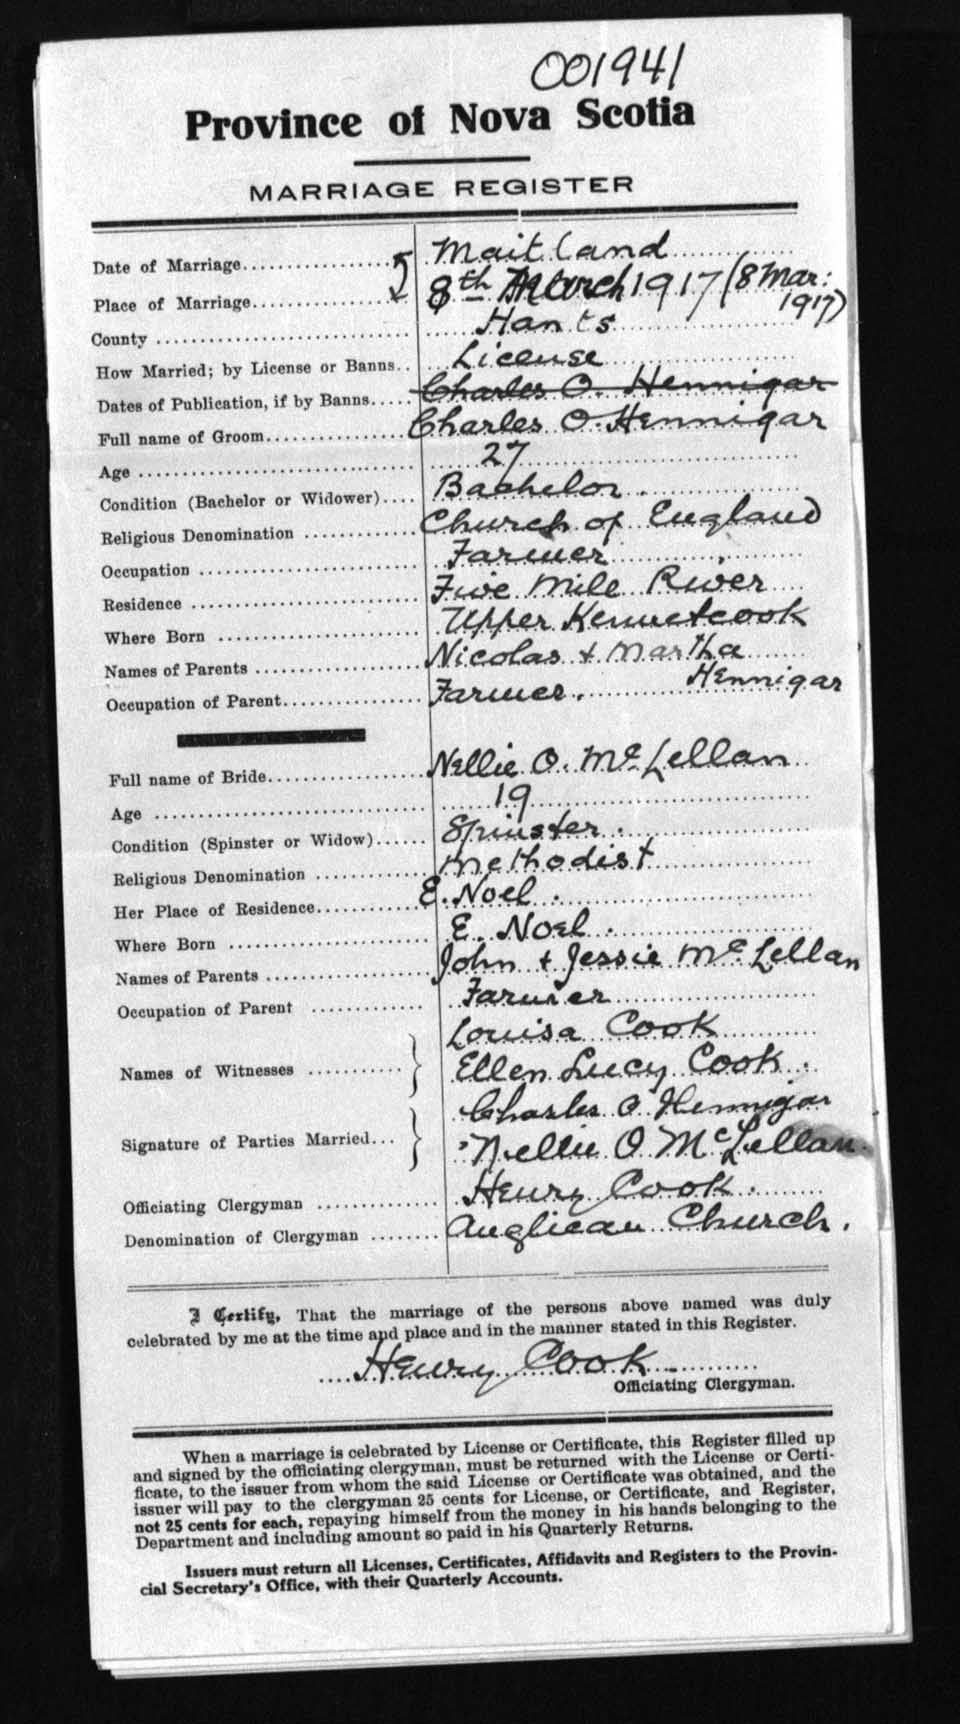 001941
Province of Nova Scotia
MARRIAGE REGISTER
Date of Marriage Maitland
Place of Marriage 8th March 1917 (8 Mar: 1917)
County Hants
How Married; by License or Banns License
Dates of Publication, if by Banns Charles O. Hennigar
Full name of Groom Charles O. Hennigar
Age 27
Condition (Bachelor or Widower) Bachelor
Religious Denomination Church of England
Occupation Farmer
Residence Five Mile River
Where Born Upper Kennetcook
Names of Parents Nicolas + Martha Hennigar
Occupation of Parent Farmer.
Full name of Bride Nellie O. McLellan
Age 19
Condition (Spinster or Widow) Spinster.
Religious Denomination Methodist
Her Place of Residence E. Noel.
Where Born E. Noel.
Names of Parents John + Jessie McLellan
Occupation of Parent Farmer
Names of Witnesses Louisa Cook
Ellen Lucy Cook.
Signature of Parties Married Charles O Hennigar
Nellie O McLellan
Officiating Clergyman Henry Cook.
Denomination of Clergyman Anglican Church.
I Certify, That the marriage of the persons above named was duly
celebrated by me at the time and place and in the manner stated in this Register.
Henry Cook
Officiating Clergyman.
When a marriage is celebrated by License or Certificate, this Register filled up
and signed by the officiating clergyman, must be returned with the License or Certi-
ficate, to the issuer from whom the said License or Certificate was obtained, and the
issuer will pay to the clergyman 25 cents for License, or Certificate, and Register,
not 25 cents for each, repaying himself from the money in his hands belonging to the
Department and including amount so paid in his Quarterly Returns.
Issuers must return all Licenses, Certificates, Affidavits and Registers to the Provin-
cial Secretary's Office, with their Quarterly Accounts.